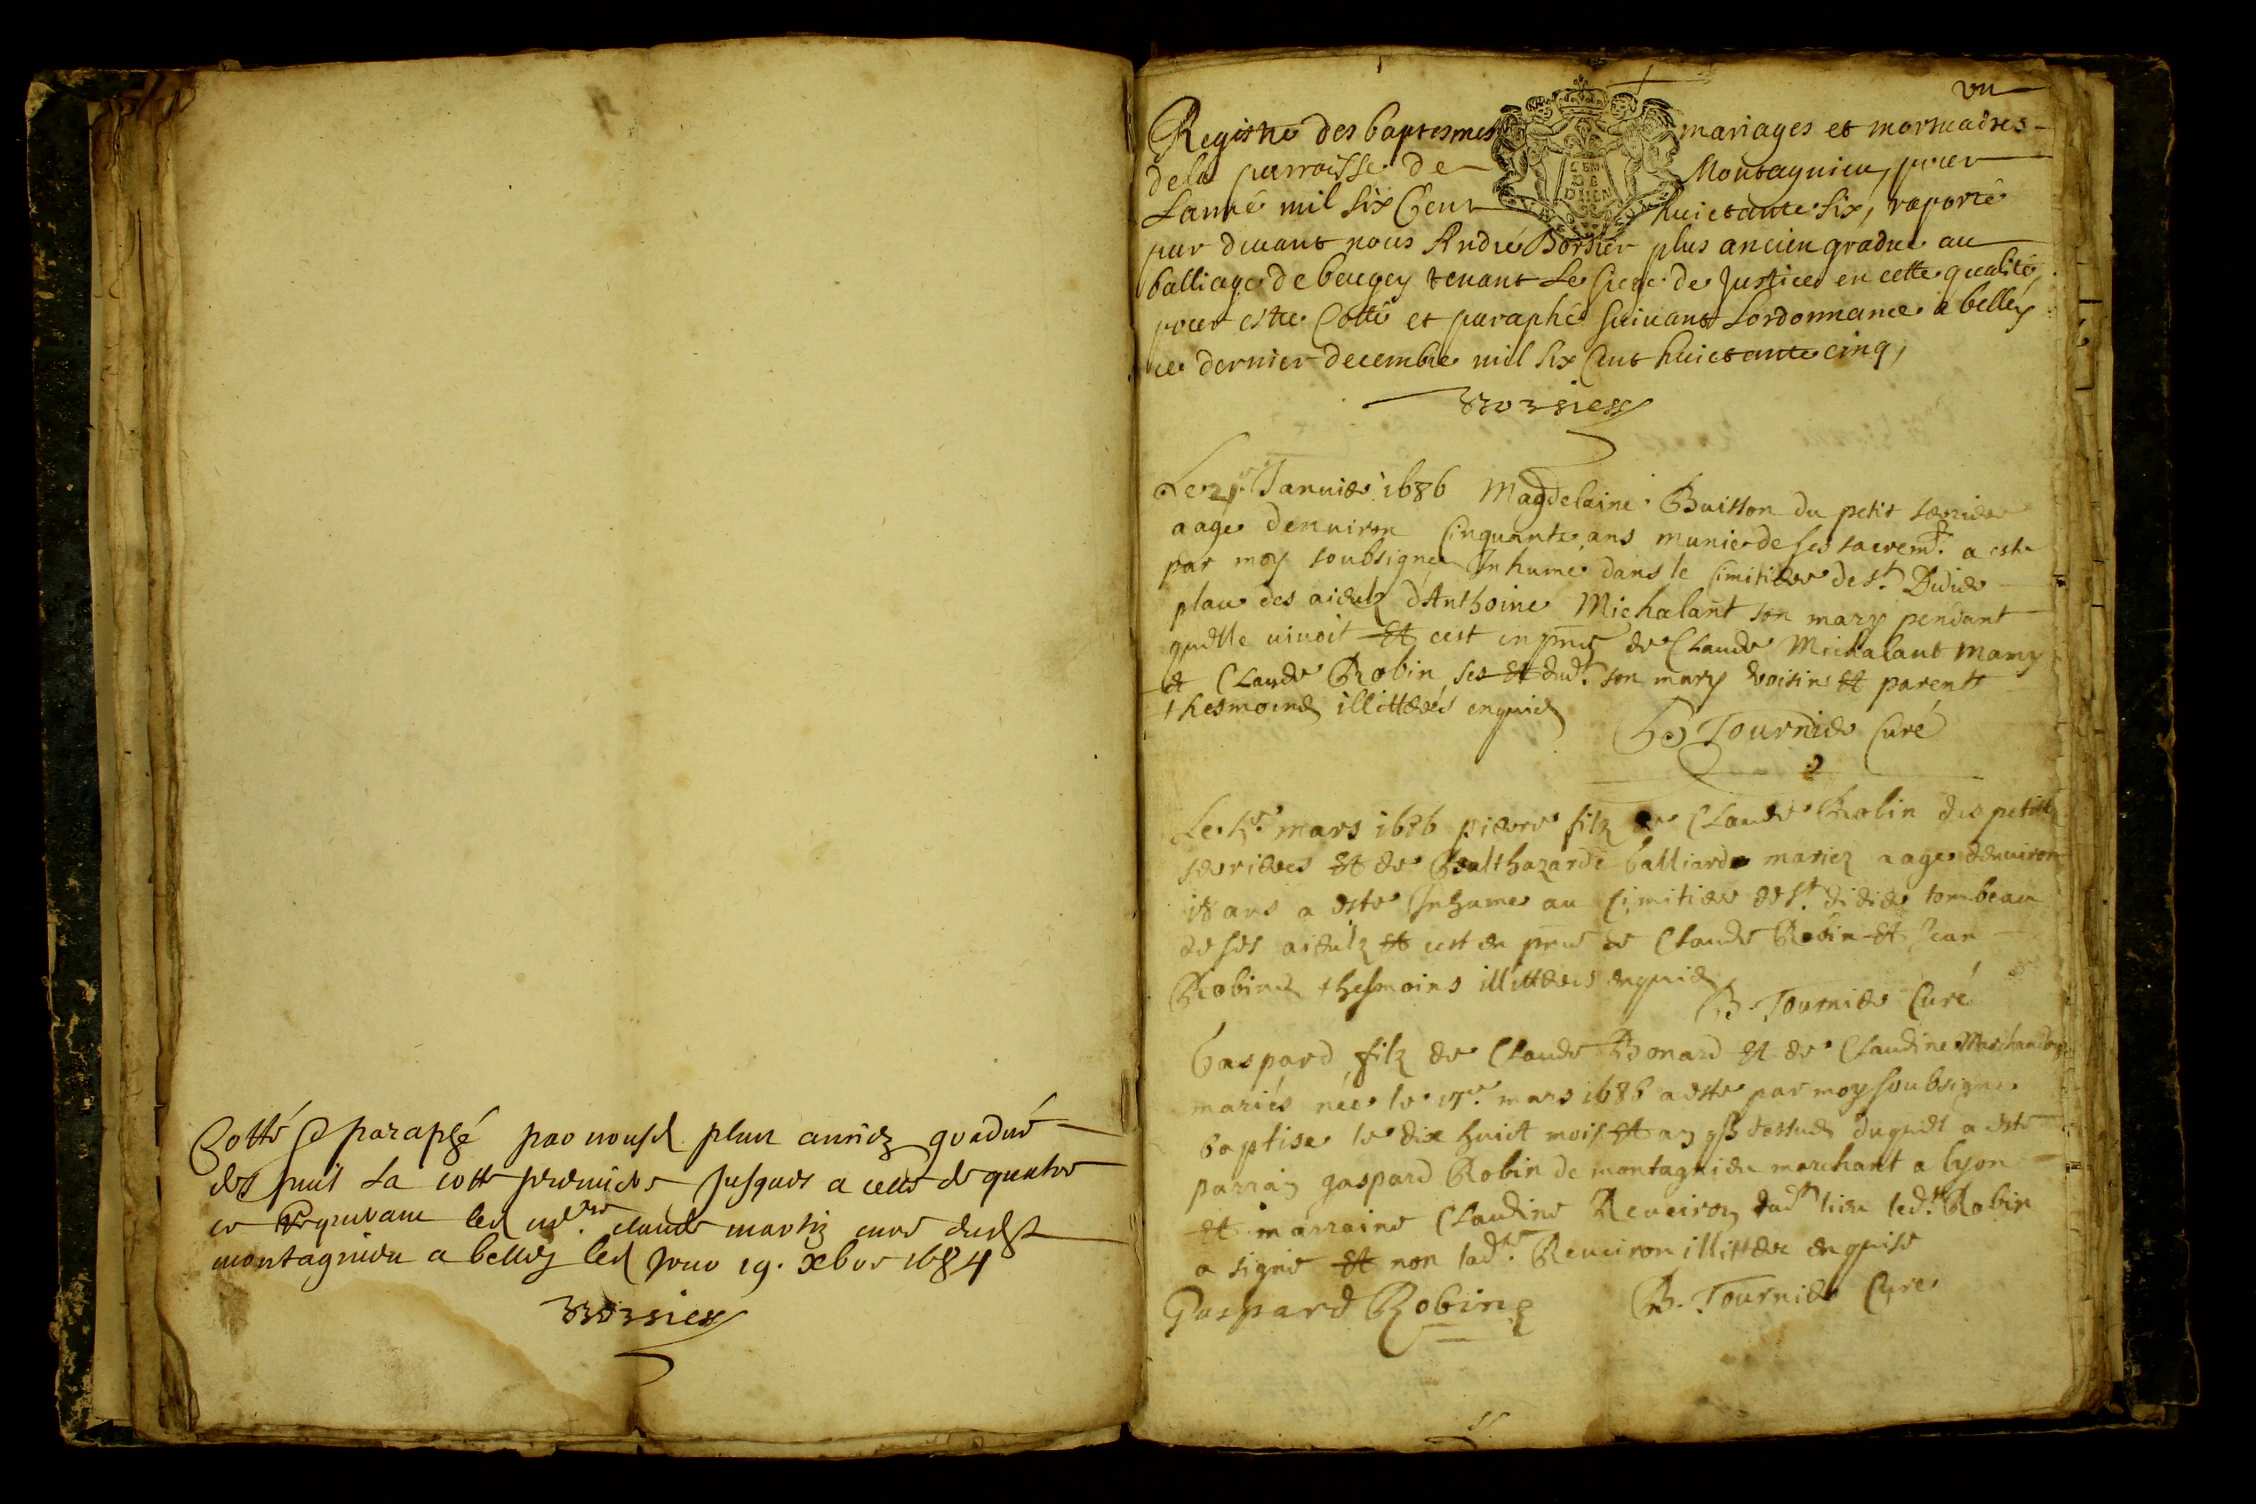 Cotté et paraphé par nousd plus antien gradué
despuis la cotte premiere jusques a celle de quatre
ce requerant led mre claude martin curé dudt
montagnieu a belley led jour 19. xbre 1684
Borsier
un
Registre des baptesmes mariages et mortuaires
de la parroisse de Montagnieu, pour
Lanné mil six Cent huictante six, raporté
par devant nous André Borsier plus ancien gradué au
balliage de beugey tenant Le siege de Justice en cette qualité
pour estre Cotté et paraphé suivant Lordonnance a belley
ce dernier decembre mil six Cent huictante cinq,
Borsier
Le 21e Janvier 1686 Magdelaine Buisson du petit serrier
aage denuiron Cinquante ans munie de ses sacremts a esté
par moy soubsigné Inhumé dans le Cimitiere de st. Didier
place des aieulz d'Anthoine Michalant son mary pendant
quelle vivoit Et cest en pnce de Claude Michalant Many
et Claude Robin ses et dudt son mary voisins et parents
thesmoins illitterés enquis
B Tournier Curé
2
Le mars 1686 pierre filz de Claude Robin des petits
serrieres et de Balthazarde balliard mariez aage denuiron
18 ans a esté Inhumé au Cimitiere de st. didier tombeau
de ses aieulz et cest en pnce de Claude Robin et Jean
Robin thesmoins illitterés enquis
B. Tournier Curé
Gaspard filz de Claude Bonard et de Claudine Marchand
mariés née le 17e mars 1686 a esté par moy soubsigné
baptise le dix huict mois et an que dessus duquel a esté
parrain gaspard Robin de montagnieu marchant a lyon
et marraine Claudine Reveiron dudt lieu ledt Robin
a signé et non ladte Reveiron illitteré enquise
Gaspard Robin B. Tournier Curé